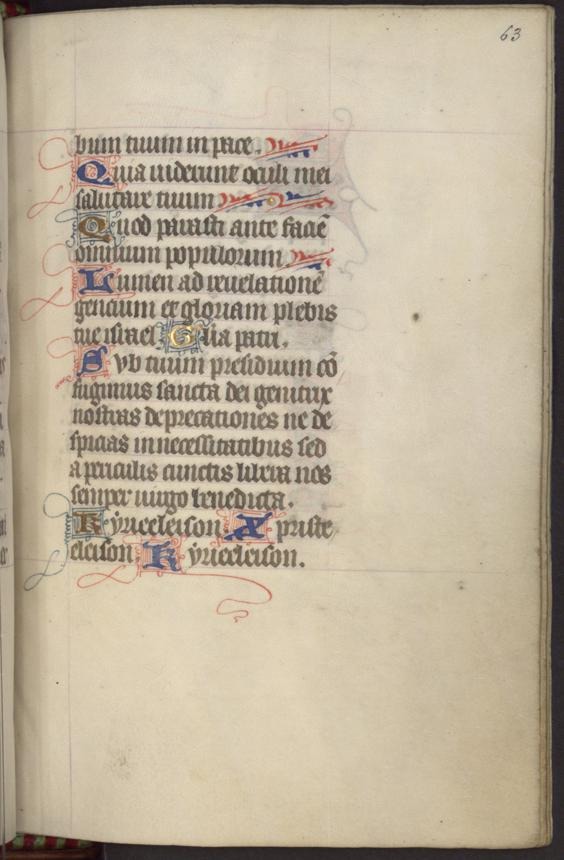 63
bum tuum in pace.
Quia uiderunt oculi mei
salutare tuum
Quod parasti ante faciē
omnium populorum
Lumen ad reuelationē
gencium et gloriam plebis
tue israel. Glia patri.
Sub tuum presidium cō
fugimus sancta dei genitrix
nostras deprecationes ne de
spicias in necessitatibus sed
a periculis cunctis libera nos
semper uirgo benedicta.
Kyrieeleison. Xpriste
eleison. Kyrieeleison.